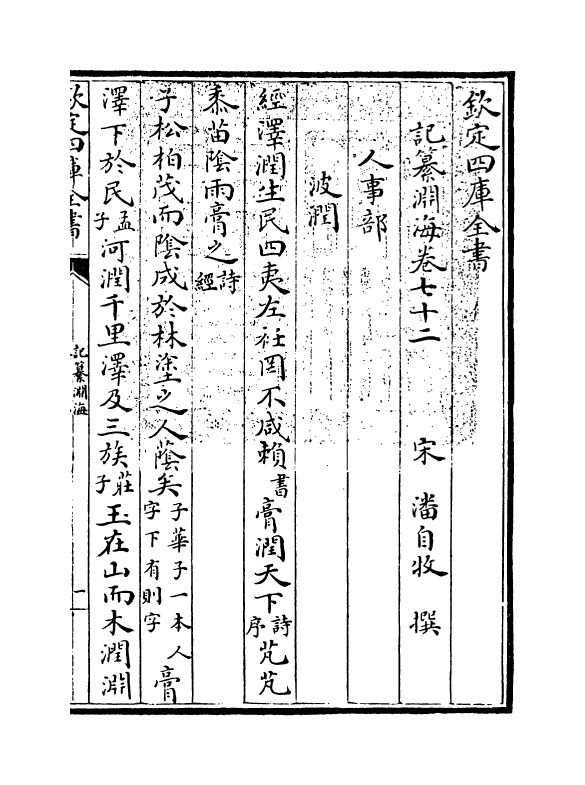 欽定四庫全書
記纂淵海卷七十二　宋　潘自牧　撰
人事部
波潤
經澤潤生民四夷左衽罔不咸賴書膏潤天下詩序芃芃
黍苗陰雨膏之詩經
子松柏茂而陰成於林塗之人蔭矣子華子一本人字下有則字膏
澤下於民孟子河潤千里澤及三族莊子玉在山而木潤淵
欽定四庫全書
記纂淵海
一